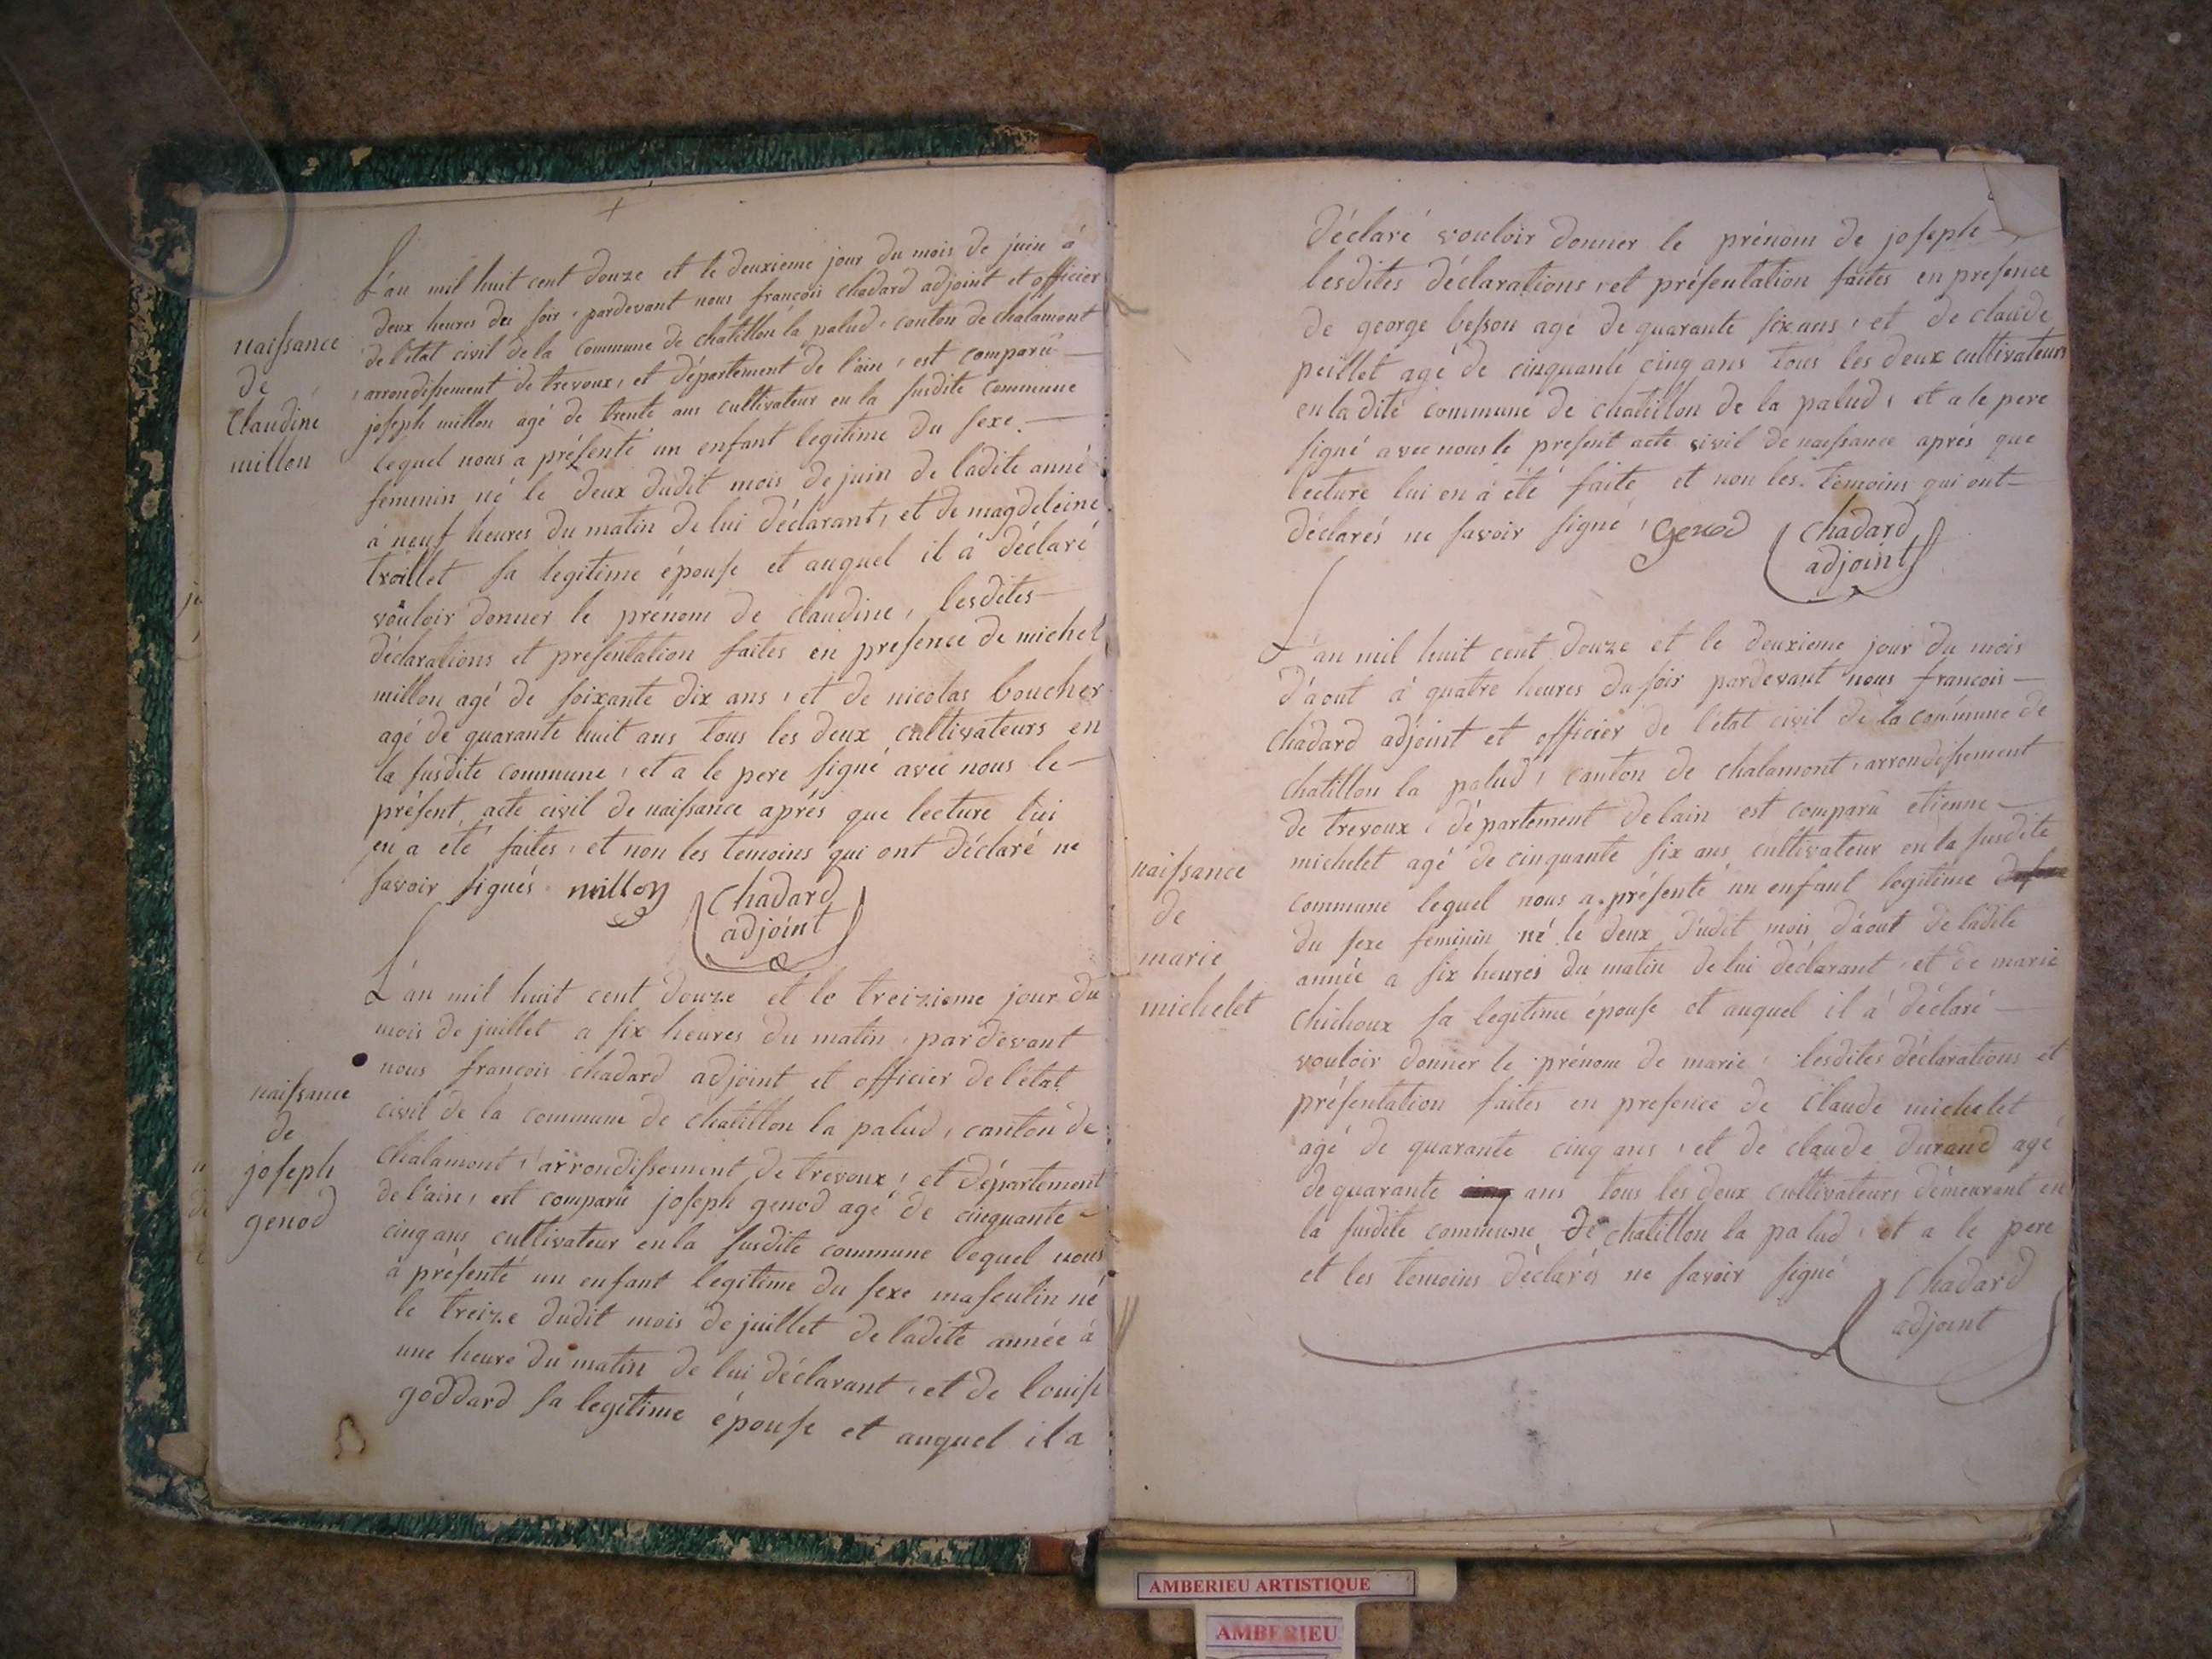 L'an mil huit cent douze et le deuxieme jour du mois de juin à
deux heures du soir, pardevant nous françois chadard adjoint et officier
de l'etat civil de la commune de chatillon la palud, canton de chalamont
, arrondissement de trevoux, et département de l'ain, est comparû
joseph millon agé de trente ans cultivateur en la susdite commune
lequel nous a présenté un enfant legitime du sexe
feminin né le deux dudit mois de juin de ladite anné
à neuf heures du matin de lui déclarant, et de magdeleine
troillet sa legitime épouse et auquel il à déclaré
vouloir donner le prénom de claudine, lesdites
déclarations et presentation faites en presence de michel
millon agé de soixante dix ans, et de nicolas boucher
agé de quarante huit ans tous les deux cultivateurs en
la susdite commune, et a le pere signé avec nous le
présent acte civil de naissance aprés que lecture lui
en a eté faites, et non les temoins qui ont déclaré ne
savoir signés millon chadard
adjoint
naissance
de
Claudine
millon
L'an mil huit cent douze et le treizieme jour du
mois de juillet a six heures du matin, pardevant
nous francois chadard adjoint et officier de l'état
civil de la commune de chatillon la palud, canton de
chalamont, arrondissement de trevoux, et département
de l'ain, est comparû joseph genod agé de cinquante
cinq ans cultivateur en la susdite commune lequel nous
a présenté un enfant legitime du sexe masculin né
le treize dudit mois de juillet de ladite année à
une heure du matin de lui déclarant, et de louise
goddard sa legitime épouse et auquel il a
naissance
de
joseph
genod
déclaré vouloir donner le prénom de joseph
lesdites déclarations, et présentation faites en presence
de george besson agé de quarante six ans, et de claude
peillet agé de cinquante cinq ans tous les deux cultivateurs
en la dite commune de chatillon de la palud, et a le pere
signé avec nous le present acte civil de naissance aprés que
lecture lui en à été faite et non les temoins qui ont
déclarés ne savoir signé, genod chadard
adjoint
L'an mil huit cent douze et le deuxieme jour du mois
d'aout à quatre heures du soir pardevant nous francois
chadard adjoint et officier de l'etat civil de la commune de
chatillon la palud, canton de chalamont, arrondissement
de trevoux, département de lain est comparû etienne
michelet agé de cinquante six ans cultivateur en la susdite
commune lequel nous a présenté un enfant legitime
du sexe feminin né le deux dudit mois d'aout de ladite
année a six heures du matin de lui déclarant, et de marie
chichoux sa legitime épouse et auquel il à déclaré
vouloir donner le prénom de marie, lesdites déclarations et
présentation faites en presence de Claude michelet
agé de quarante cinq ans, et de claude durand agé
de quarante ans tous les deux cultivateurs demeurant en
la susdite commune de chatillon la palud, et a le pere
et les temoins déclarés ne savoir signé Chadard
adjoint
naissance
de
marie
michelet
AMBERIEU ARTISTIQUE
AMBERIEU